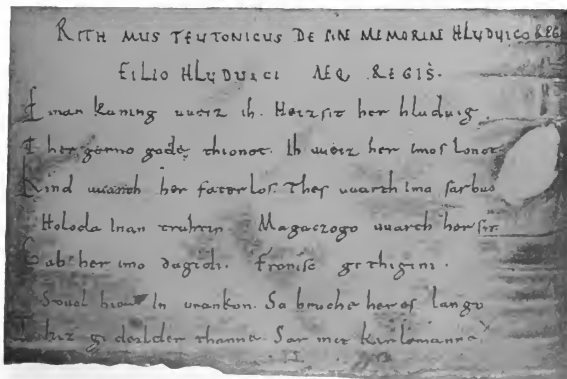 RITHMUS TEUTONICUS DE PIAE MEMORIAE HLUDUICO REG
FILIO HLUDUICI AEQ REGIS.
Einan kuning uueiz ih. Heizsit her hluduig
Ther gerno gode thionot. Ih uueiz her imos lonot
Kind uuarth her faterlos. Thes uuarth imo sar buo
Holoda inan truhtin Magaczogo uuarth her sin
Gab her imo dugidi. Fronisc githigini.
Stuol hier in urankon. So bruche her es lango
Thaz gideilder thanne Sar mit karlemanne